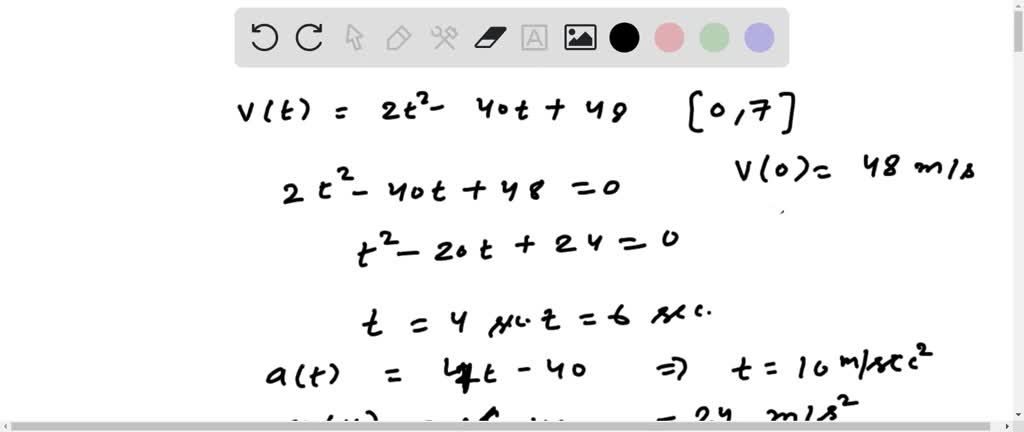 v(t) = 2t² - 40t + 48 [0,7]
v(0) = 48 m/s
2t² - 40t + 48 = 0
t² - 20t + 24 = 0
t = 4 sec. t = 6 sec.
a(t) = 4t - 40 ⇒ t = 10 m/sec²
= 24 m/s²